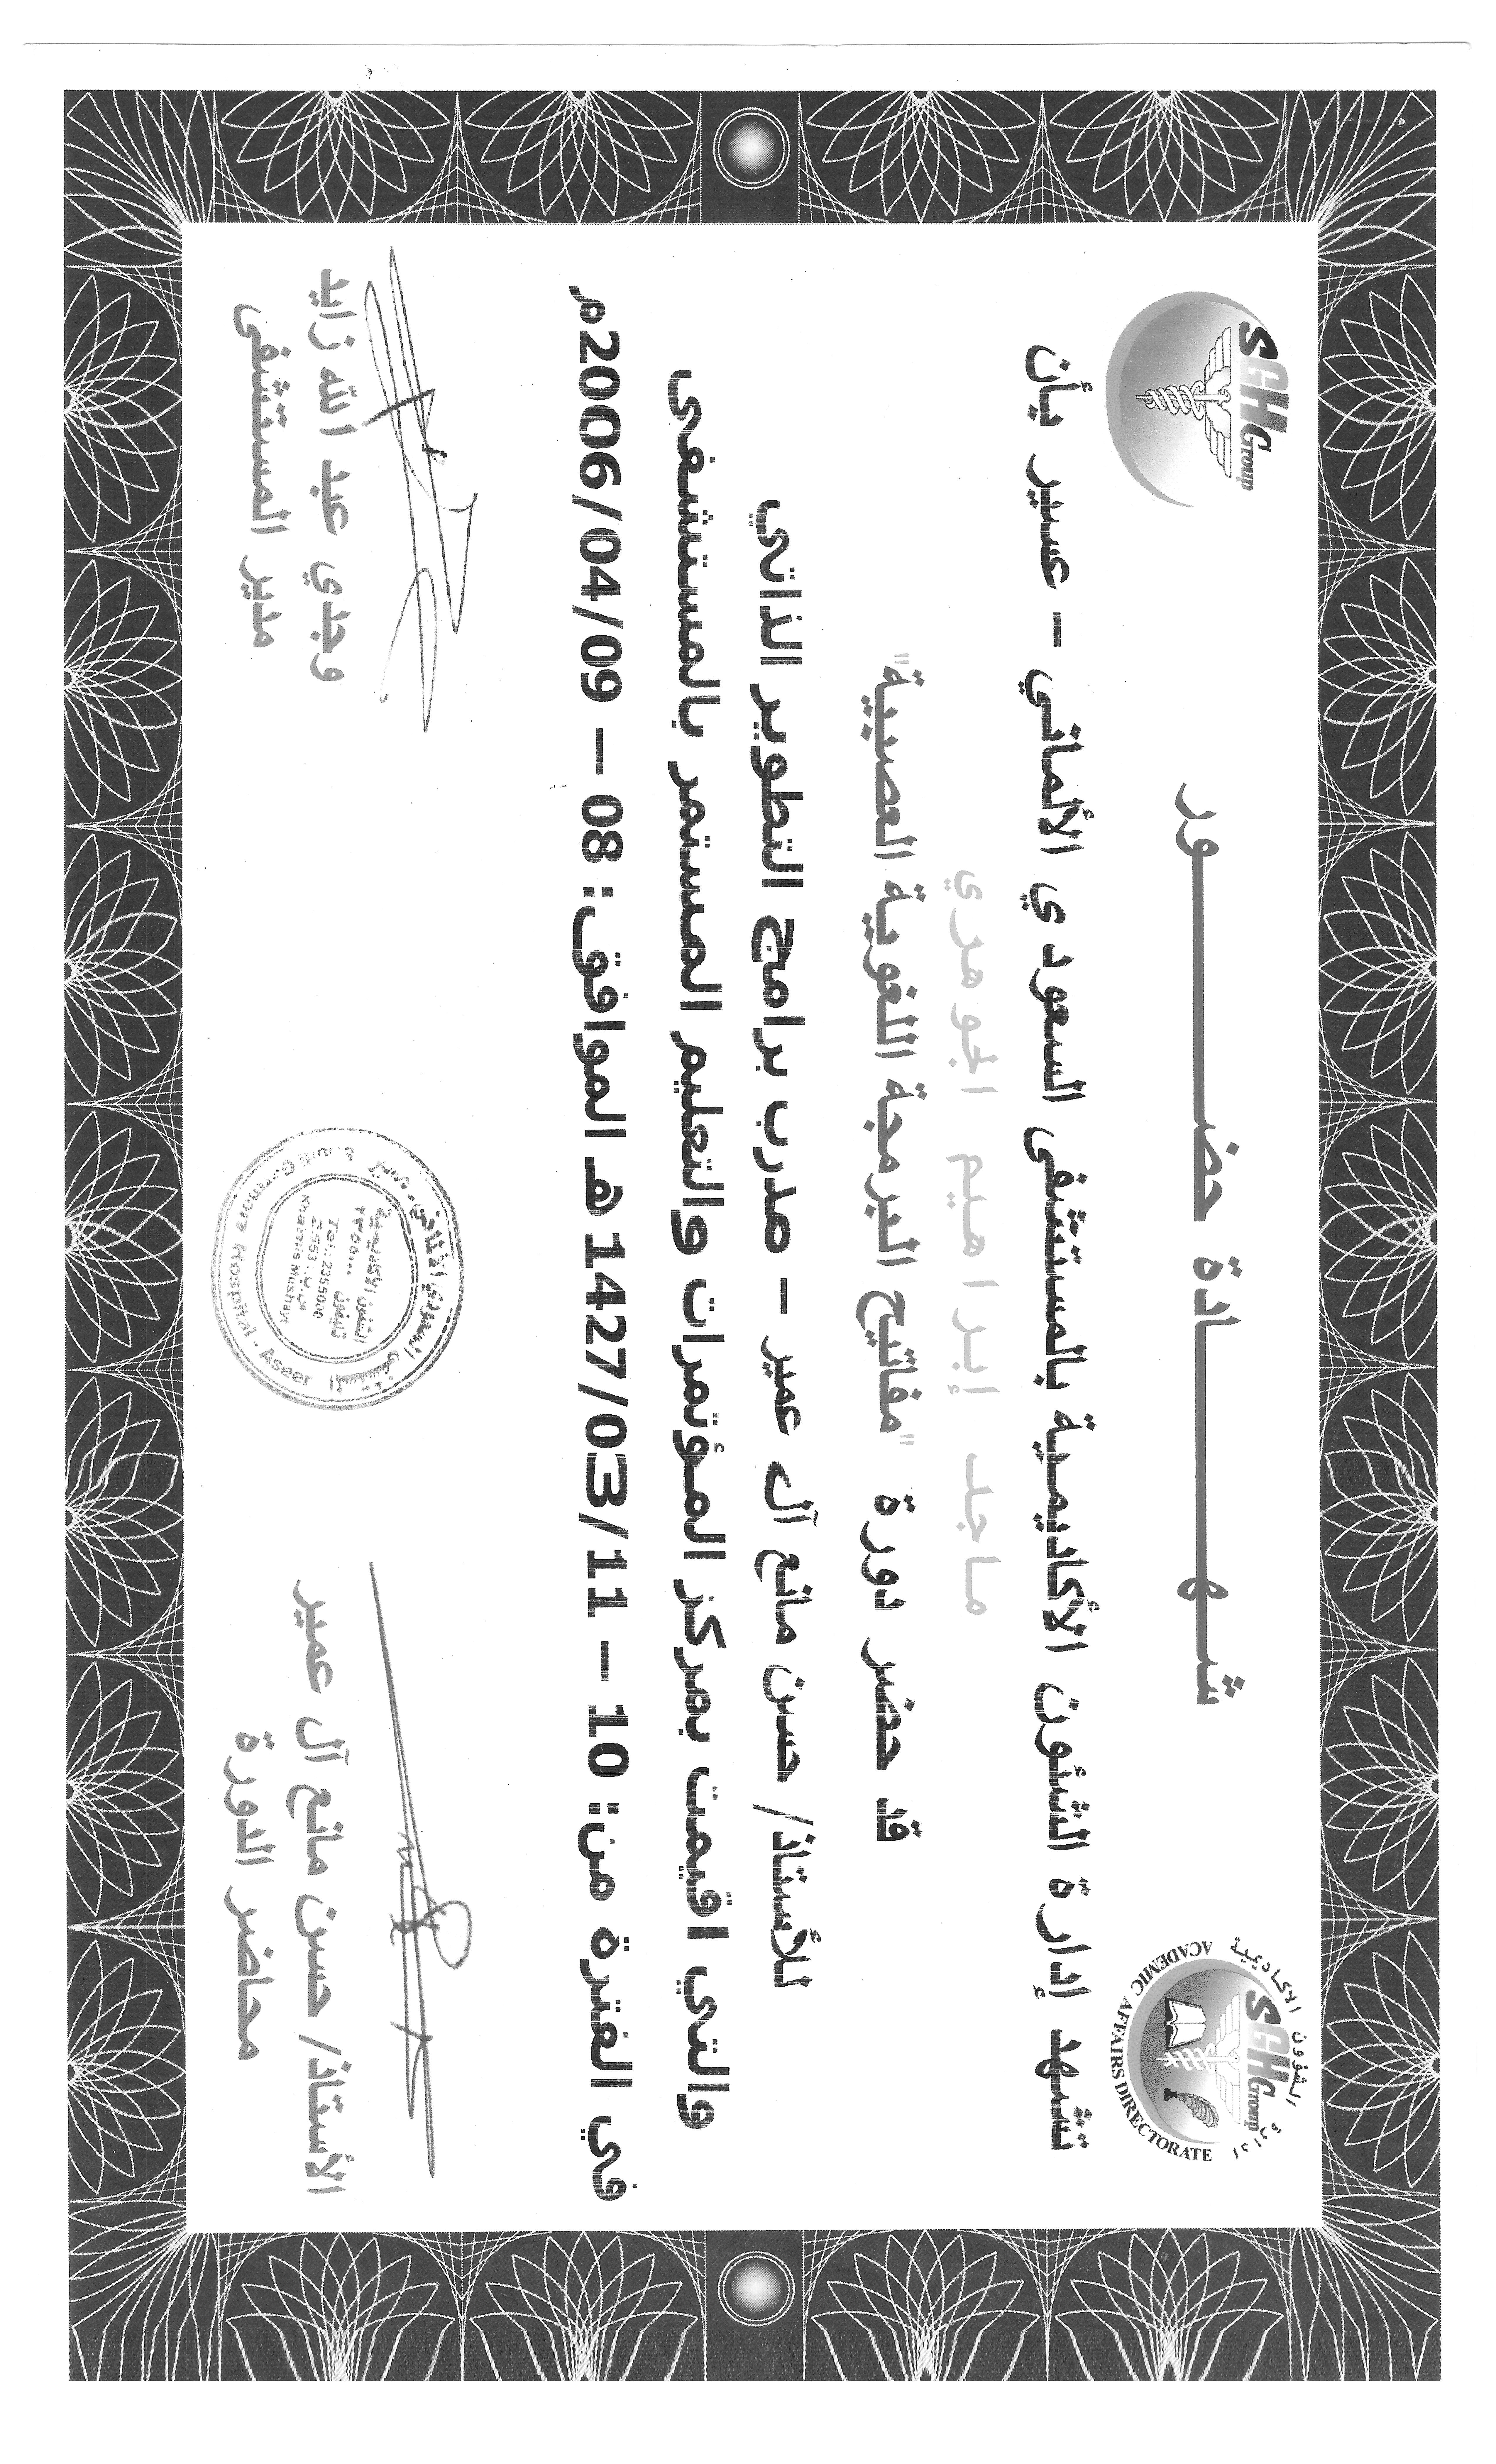 SGH Group
إدارة الشؤون الأكاديمية
SGH Group
ACADEMIC AFFAIRS DIRECTORATE
شهـــــــادة حضـــــــور
تشهد إدارة الشئون الأكاديمية بالمستشفى السعودي الألماني – عسير بأن
ماجد إبراهيم الجوهري
قد حضر دورة "مفاتيح البرمجة اللغوية العصبية"
للأستاذ/ حسن مانع آل عمير – مدرب برامج التطوير الذاتي
والتي اقيمت بمركز المؤتمرات والتعليم المستمر بالمستشفى
في الفترة من: 10 – 1427/03/11 هـ الموافق: 08 – 2006/04/09م
الأستاذ/ حسن مانع آل عمير
محاضر الدورة
وجدي عبد الله زايد
مدير المستشفى
المستشفى السعودي الألماني - عسير
الشئون الأكاديمية
تليفون ٢٣٥٥٠٠٠
Tel.: 2355000
ص.ب. 2553
Khamis Mushayt
Saudi German Hospital - Aseer